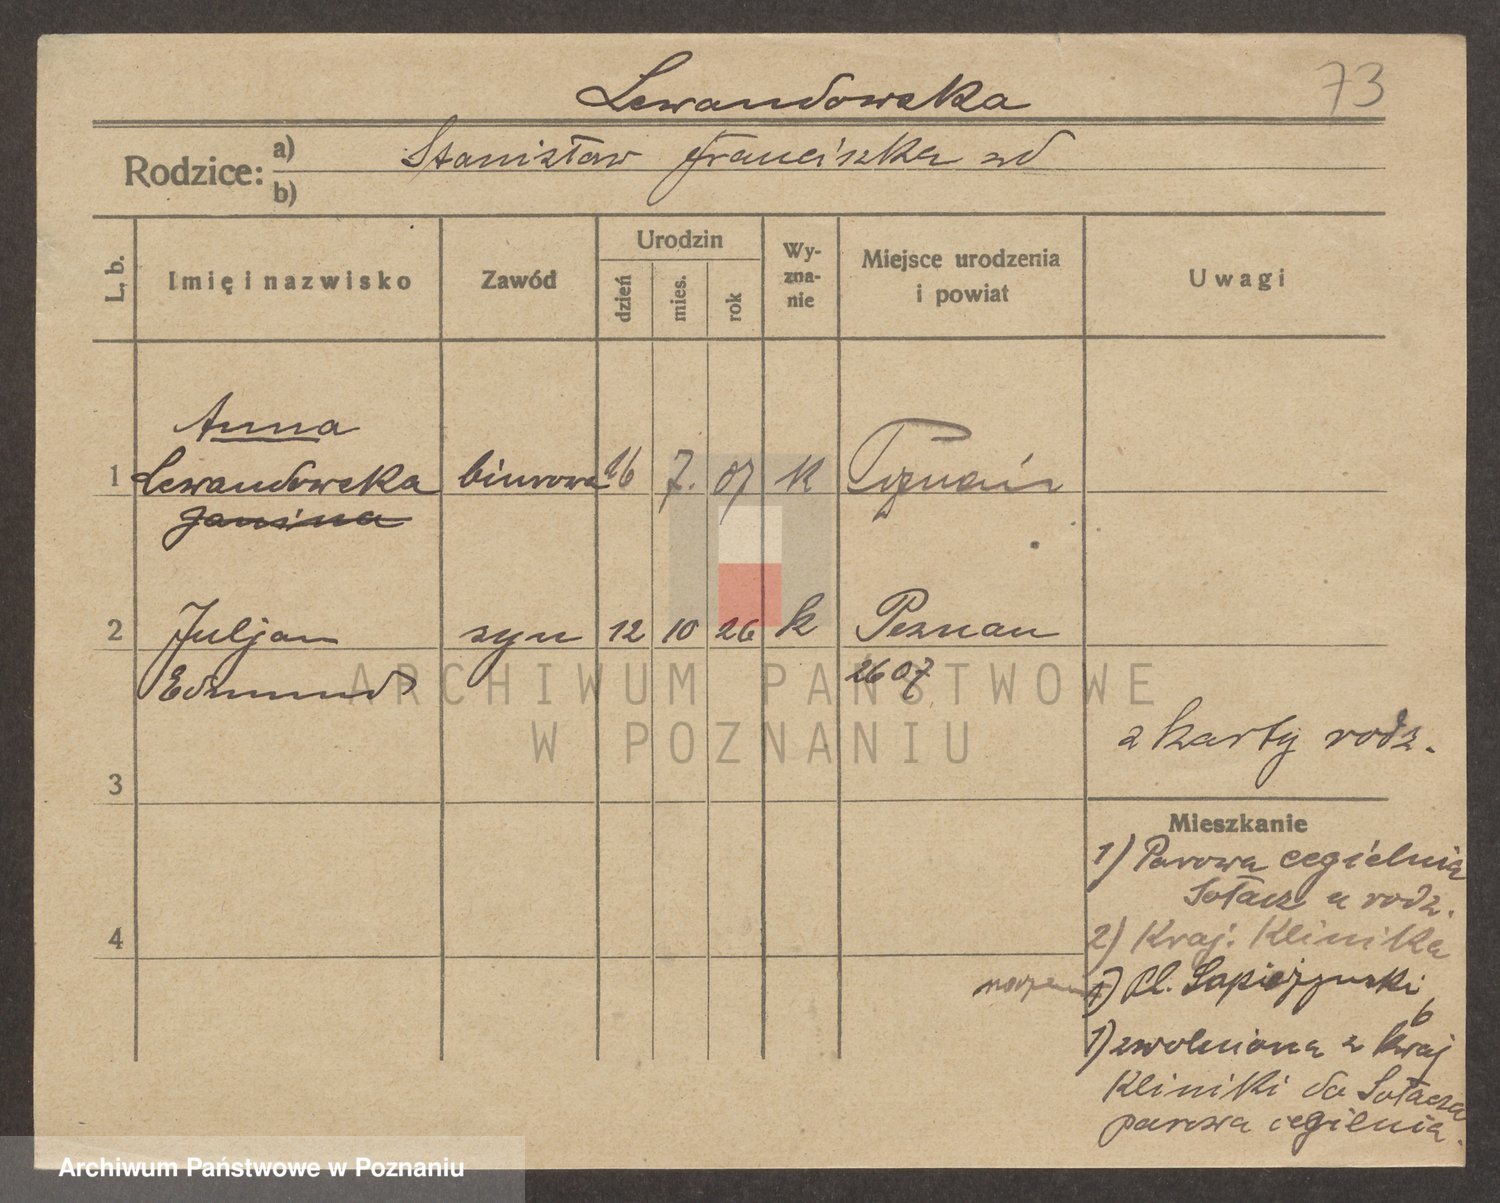 Lewandowska
73
Rodzice: a) Stanisław Franciszka zd
b)
L. b.
Imię i nazwisko
Zawód
Urodzin
dzień
mies.
rok
Wy-
zna-
nie
Miejsce urodzenia
i powiat
Uwagi
Anna
1 Lewandowska biurowa 26 7. 07 k Poznań
Janina
2 Juljan syn 12 10 26 k Poznan
Edmund 26 07
ARCHIWUM PAŃSTWOWE
W POZNANIU
z karty rodz.
3
Mieszkanie
1) Parowa cegielnia
Sołacz u rodz.
2) Kraj. Klinika
4
1) Pl. Sapieżynski
6
1) zwolniona z kraj
Kliniki do Sołacza
parowa cegielnia.
Archiwum Państwowe w Poznaniu